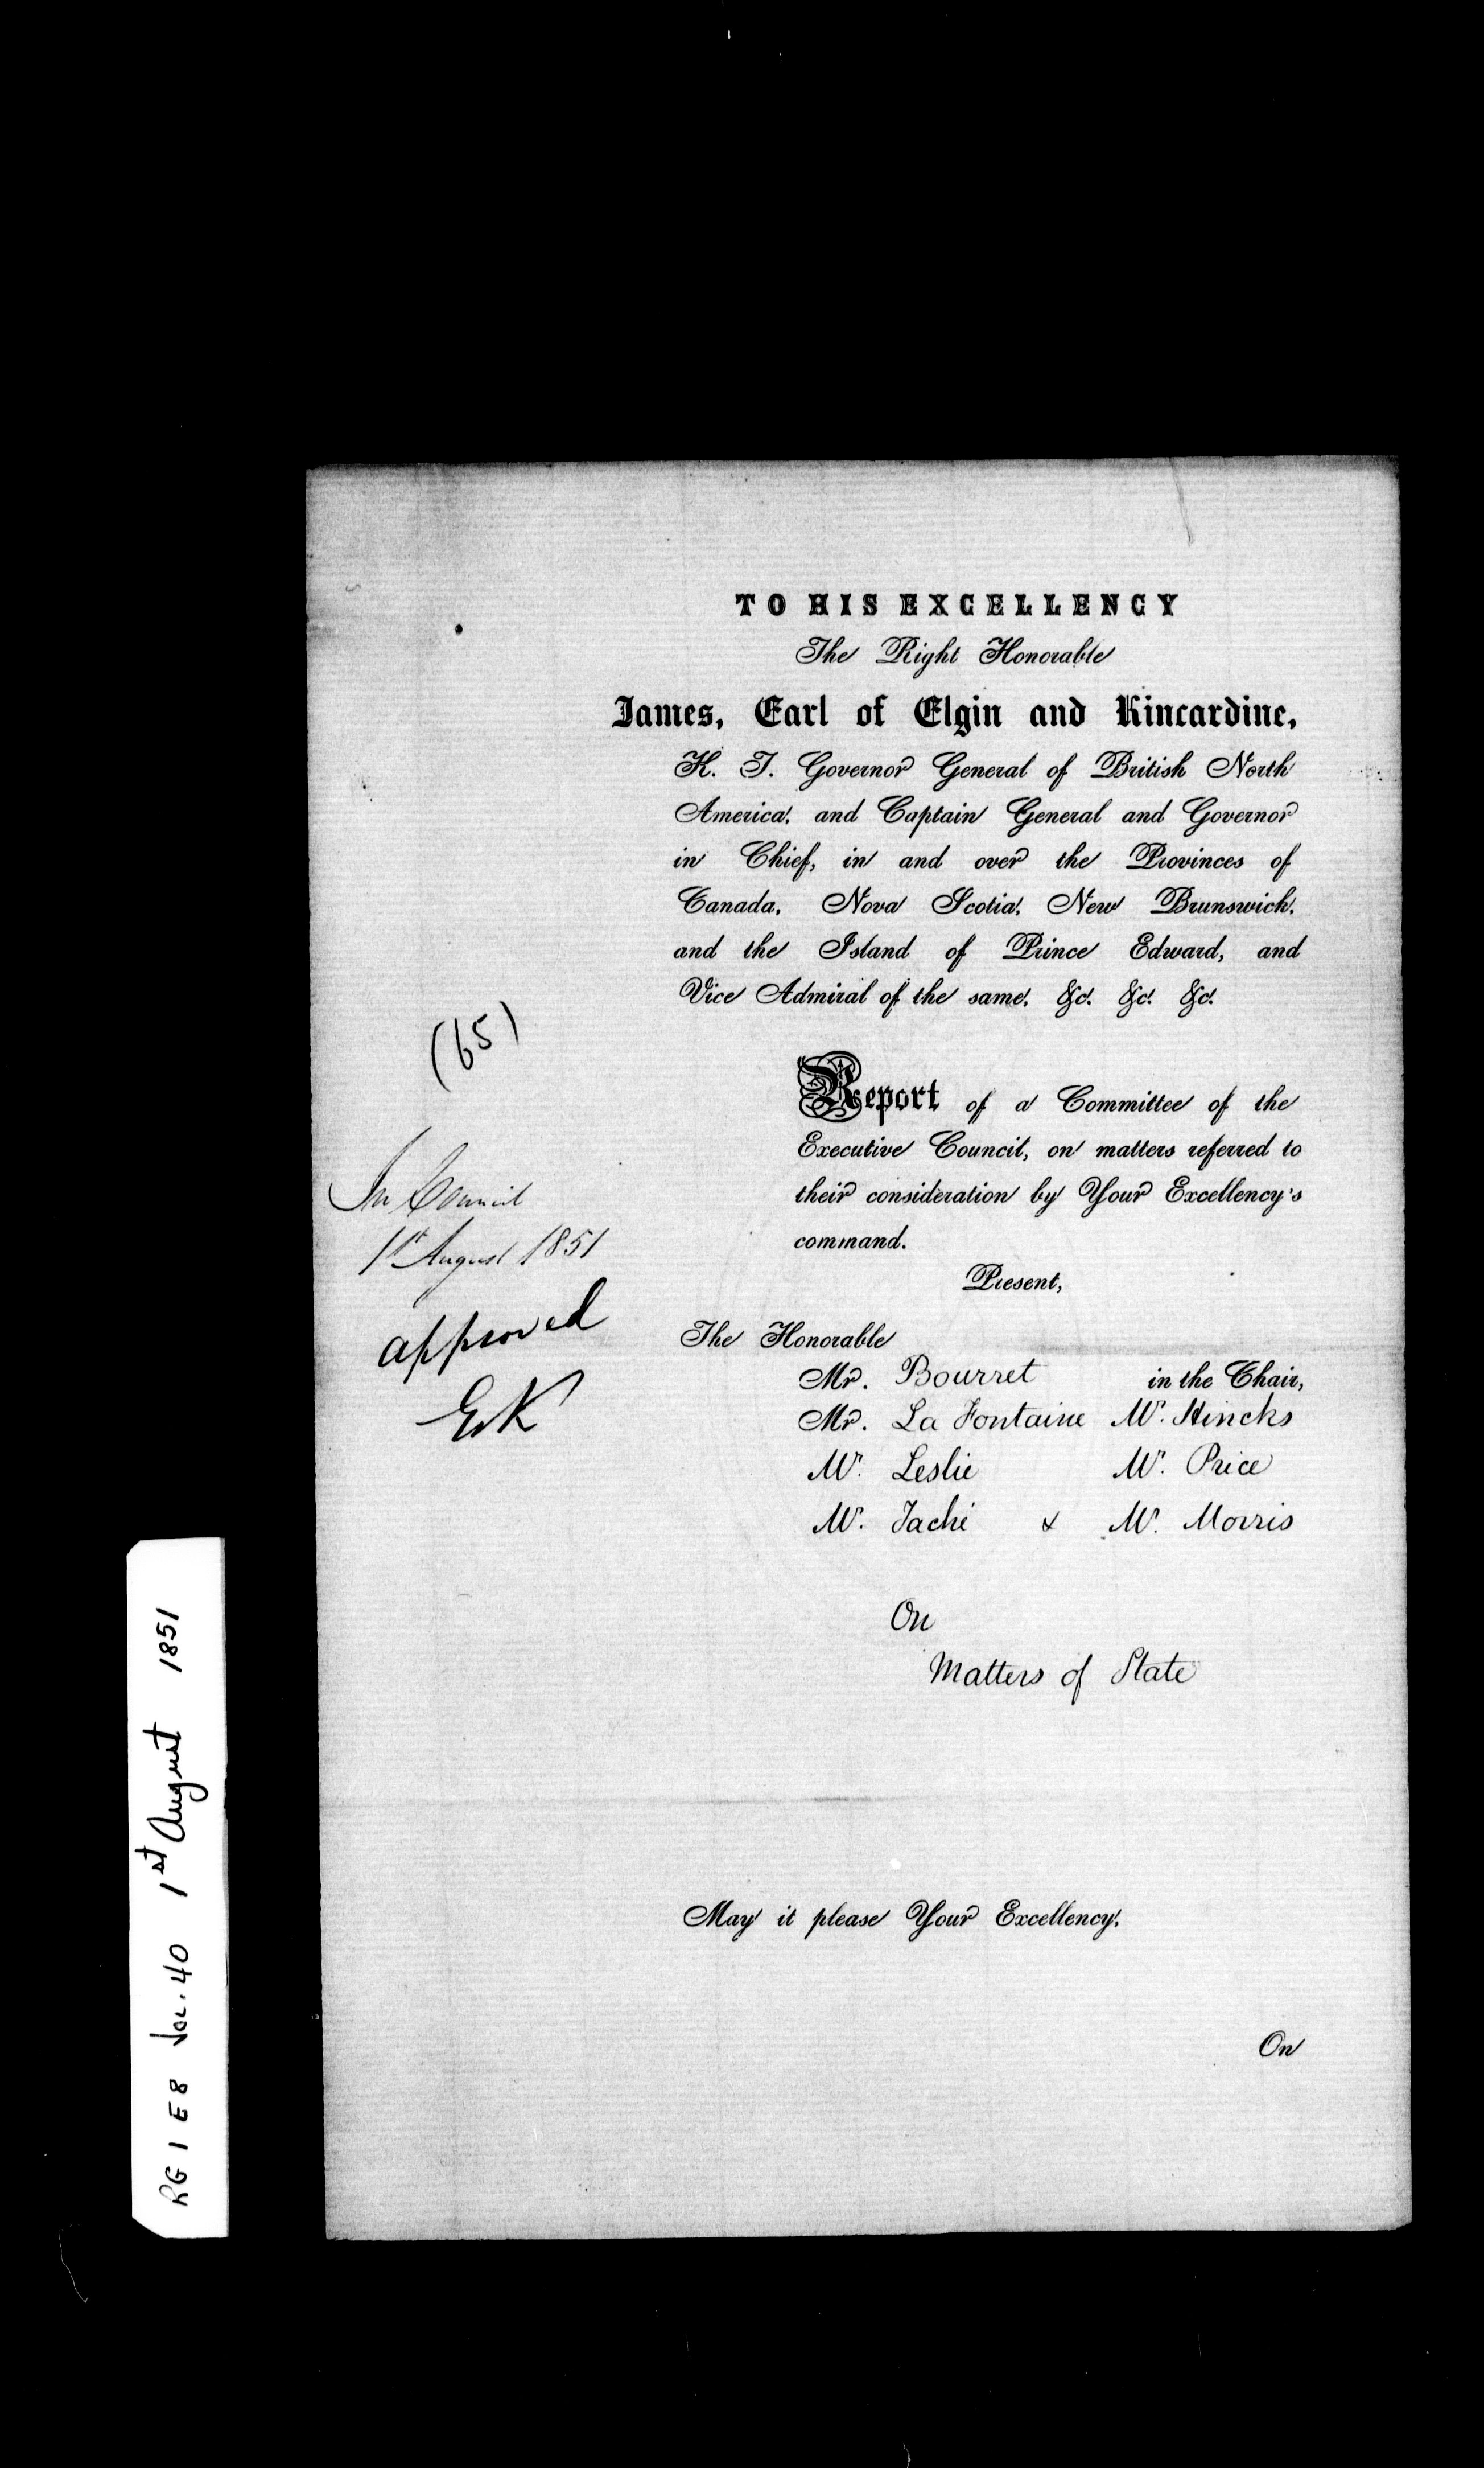 TO HIS EXCELLENCY
The Right Honorable
James, Earl of Elgin and Kincardine,
K. T. Governor General of British North
America, and Captain General and Governor
in Chief, in and over the Provinces of
Canada, Nova Scotia, New Brunswick,
and the Island of Prince Edward, and
Vice Admiral of the same, &c. &c. &c.
(65)
Report of a Committee of the
Executive Council, on matters referred to
their consideration by Your Excellency's
command.
In Council
1st August 1851
approved
E&K
Present,
The Honorable
Mr. Bourret in the Chair,
Mr. La Fontaine Mr. Hincks
Mr. Leslie Mr. Price
Mr. Taché & Mr. Morris
On
Matters of State
May it please Your Excellency,
On
RG 1 E8 Vol. 40 1st August 1851